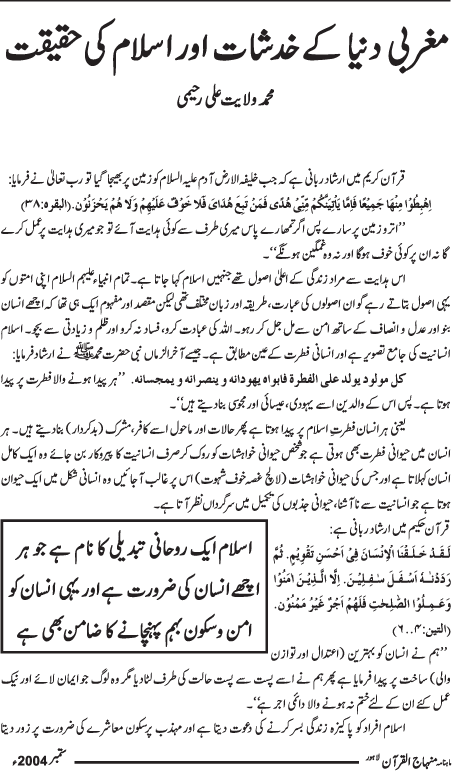 مغربی دنیا کے خدشات اور اسلام کی حقیقت
محمد ولایت علی رحیمی
قرآن کریم میں ارشاد ربانی ہے کہ جب خلیفہ الارض آدم علیہ السلام کو زمین پر بھیجا گیا تو رب تعالیٰ نے فرمایا:
اِهْبِطُوْا مِنْهَا جَمِيْعًا فَاِمَّا يَأْتِيَنَّكُمْ مِّنِّيْ هُدًى فَمَنْ تَبِعَ هُدَايَ فَلَا خَوْفٌ عَلَيْهِمْ وَلَا هُمْ يَحْزَنُوْن. (البقرہ:۳۸)
’’اترو زمین پر سارے پس اگر تمہارے پاس میری طرف سے کوئی ہدایت آئے تو جو میری ہدایت پر عمل کرے
گا نہ ان پر کوئی خوف ہوگا اور نہ وہ غمگین ہونگے‘‘۔
اس ہدایت سے مراد زندگی کے اعلیٰ اصول تھے جنہیں اسلام کہا جاتا ہے۔ تمام انبیاء علیہم السلام اپنی امتوں کو
یہی اصول بتاتے رہے گو ان اصولوں کی عبارت، طریقہ اور زبان مختلف تھی لیکن مقصد اور مفہوم ایک ہی تھا کہ اچھے انسان
بنو اور عدل و انصاف کے ساتھ امن سے مل جل کر رہو۔ اللہ کی عبادت کرو، فساد نہ کرو اور ظلم و زیادتی سے بچو۔ اسلام
انسانیت کی جامع تصویر ہے اور انسانی فطرت کے عین مطابق ہے۔ جیسے آخر الزماں نبی حضرت محمد ﷺ نے ارشاد فرمایا:
کل مولود یولد علی الفطرۃ فابواہ یھودانہ و ینصرانہ و یمجسانہ. ’’ہر پیدا ہونے والا فطرت پر پیدا
ہوتا ہے۔ پس اس کے والدین اسے یہودی، عیسائی اور مجوسی بنادیتے ہیں‘‘۔
یعنی ہر انسان فطرتِ اسلام پر پیدا ہوتا ہے پھر حالات اور ماحول اسے کافر، مشرک (بدکردار) بنادیتے ہیں۔ ہر
انسان میں حیوانی فطرت بھی ہوتی ہے جو شخص حیوانی خواہشات کو روک کر صرف انسانیت کا پیروکار بن جائے وہ ایک کامل
انسان کہلاتا ہے اور جس کی حیوانی خواہشات (لالچ غصہ خوف شہوت) اس پر غالب آجائیں وہ انسانی شکل میں ایک حیوان
ہوتا ہے جو انسانیت سے ناآشنا، حیوانی جذبوں کی تکمیل میں سرگرداں نظر آتا ہے۔
قرآن حکیم میں ارشاد ربانی ہے:
لَقَدْ خَلَقْنَا الْاِنْسَانَ فِيْ اَحْسَنِ تَقْوِيْمٍ. ثُمَّ
رَدَدْنٰهُ اَسْفَلَ سٰفِلِيْنَ. اِلَّا الَّذِيْنَ اٰمَنُوْا
وَعَمِلُوا الصّٰلِحٰتِ فَلَهُمْ اَجْرٌ غَيْرُ مَمْنُوْنٍ.
(التین:۴۔۶)
اسلام ایک روحانی تبدیلی کا نام ہے جو ہر
اچھے انسان کی ضرورت ہے اور یہی انسان کو
امن و سکون بہم پہنچانے کا ضامن بھی ہے
’’ہم نے انسان کو بہترین (اعتدال اور توازن
والی) ساخت پر پیدا فرمایا ہے پھر ہم نے اسے پست سے پست حالت کی طرف لٹا دیا مگر وہ لوگ جو ایمان لائے اور نیک
عمل کئے ان کے لئے ختم نہ ہونے والا دائمی اجر ہے‘‘۔
اسلام افراد کو پاکیزہ زندگی بسر کرنے کی دعوت دیتا ہے اور مہذب پرسکون معاشرے کی ضرورت پر زور دیتا
ماہنامہ منہاج القرآن لاہور
ستمبر 2004ء